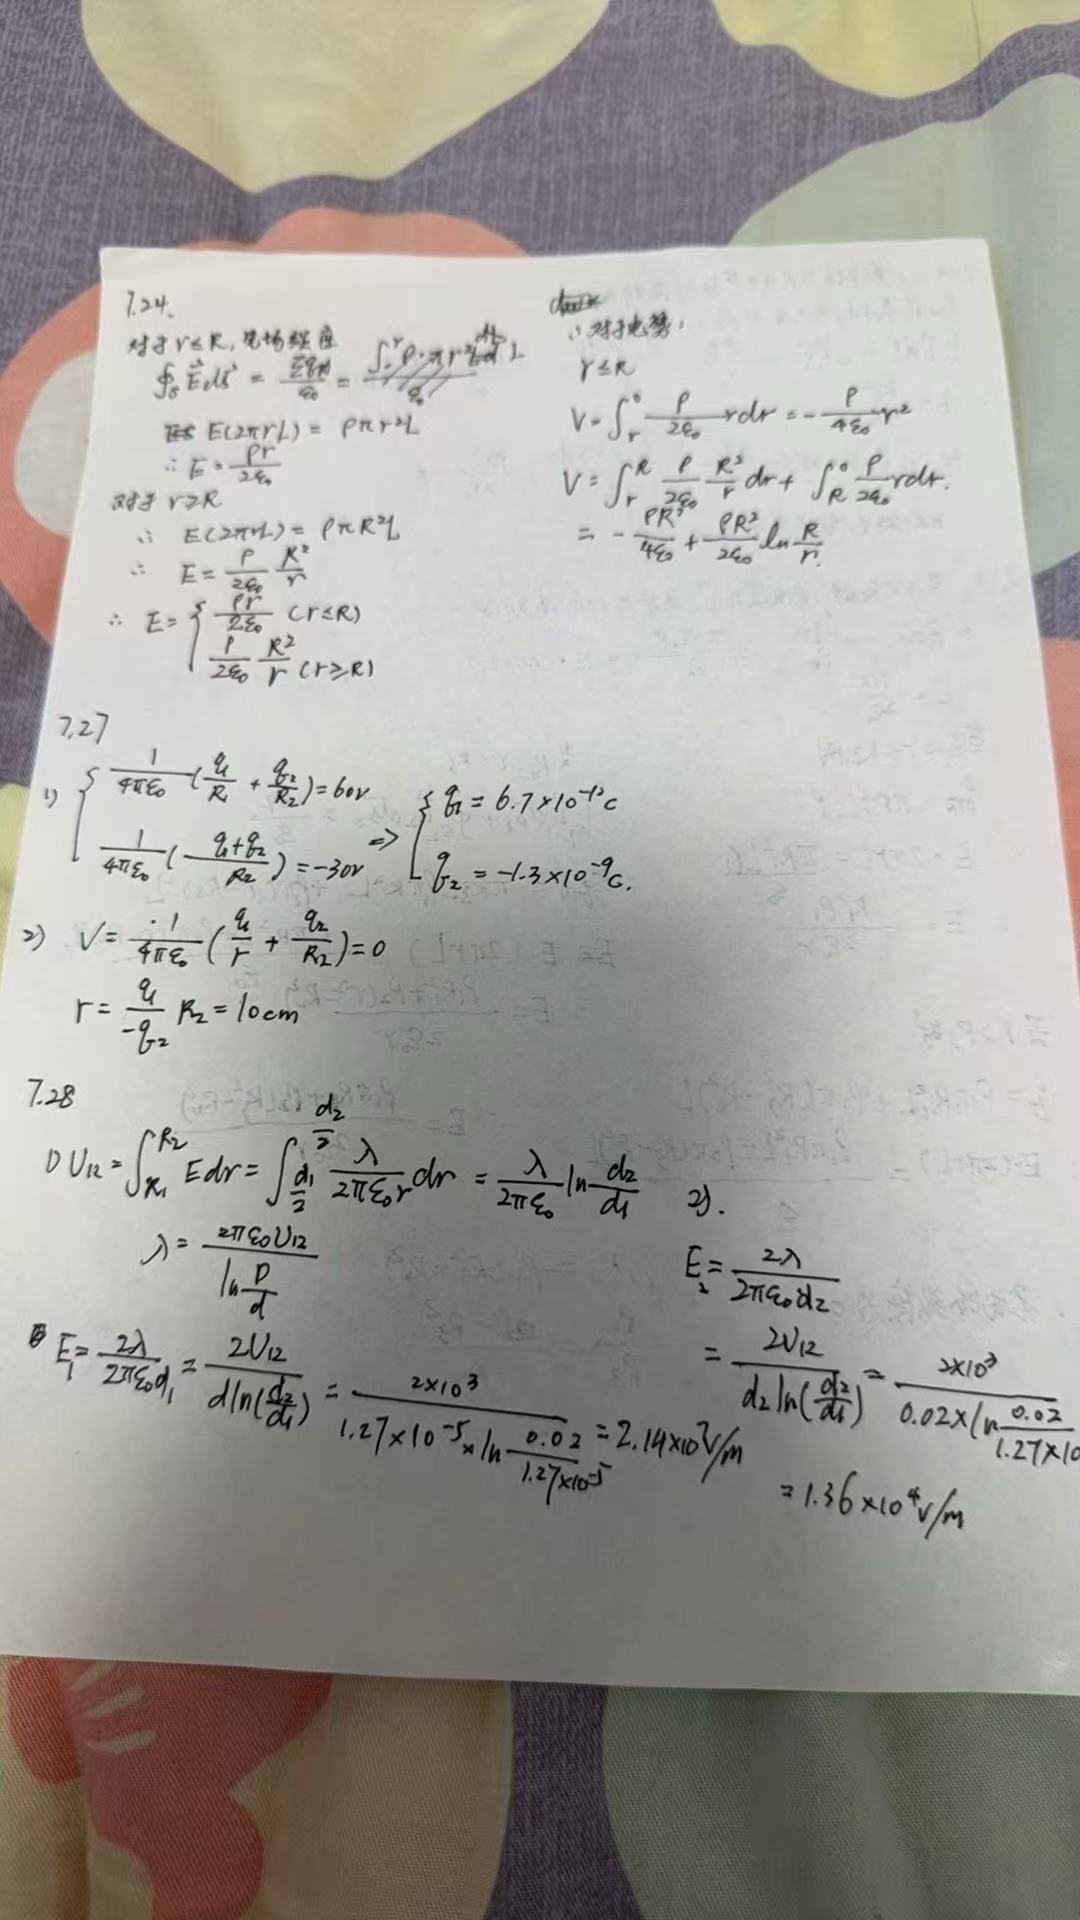 7.24.
对于 r≤R, 电场强度
∮s E·ds = Σq内/ε0 =
E(2πrL) = ρπr²L
∴ E = ρr/2ε0
对于 r≥R
∴ E(2πrL) = ρπR²L
∴ E = ρ/2ε0 R²/r
∴ E = { ρr/2ε0 (r≤R)
ρ/2ε0 R²/r (r≥R)
∴ 对于电势:
r≤R
V = ∫_r^0 ρ/2ε0 rdr = -ρ/4ε0 r²
V = ∫_r^R ρ/2ε0 R²/r dr + ∫_R^0 ρ/2ε0 rdr.
= -ρR²/4ε0 + ρR²/2ε0 ln R/r.
7.27
1) { 1/4πε0 (q1/R1 + q2/R2) = 60V
1/4πε0 (q1+q2/R2) = -30V
=> { q1 = 6.7×10⁻¹⁰C
q2 = -1.3×10⁻⁹C.
2) V = 1/4πε0 (q1/r + q2/R2) = 0
r = q1/-q2 R2 = 10cm
7.28
1) U12 = ∫_R1^R2 Edr = ∫_d1/2^d2/2 λ/2πε0r dr = λ/2πε0 ln d2/d1
λ = 2πε0U12/ln D/d
E1 = 2λ/2πε0d1 = 2U12/dln(d2/d1) = 2×10³/1.27×10⁻⁵×ln 0.02/1.27×10⁻⁵ = 2.14×10⁷V/m
2).
E2 = 2λ/2πε0d2
= 2U12/d2 ln(d2/d1) = 2×10³/0.02×ln 0.02/1.27×10
= 1.36×10⁴V/m